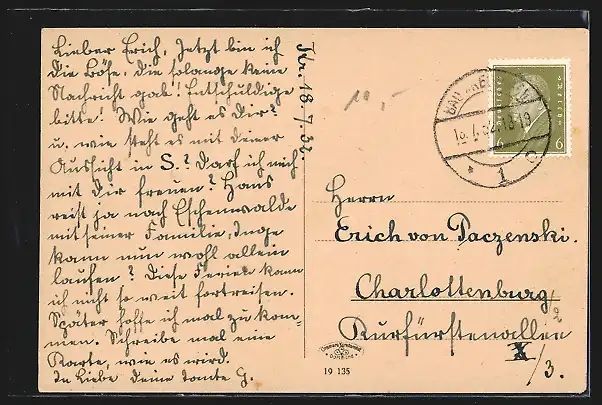 Lieber Erich, Jetzt bin ich
die Böse, die solange keine
Nachricht gab! Entschuldige
bitte! Wie geht es Dir?
u. wie steht es mit deiner
Aussicht in S.? Darf ich mich
mit dir freuen? Hans
reist ja nach Eschenwalde
mit seiner Familie, Inge
kann nun wohl allein
laufen? Diese Ferien kann
ich nicht so weit fortreisen.
Später hoffe ich mal zu kom-
men. Schreibe mal eine
Karte, wie es wird.
In Liebe deine Tante G.
18.7.32.
10,-
BAD
Deutsches Reich
6
1
Herrn
Erich von Paczenski.
Charlottenburg/2
Kurfürstenallee
X/3.
19 135